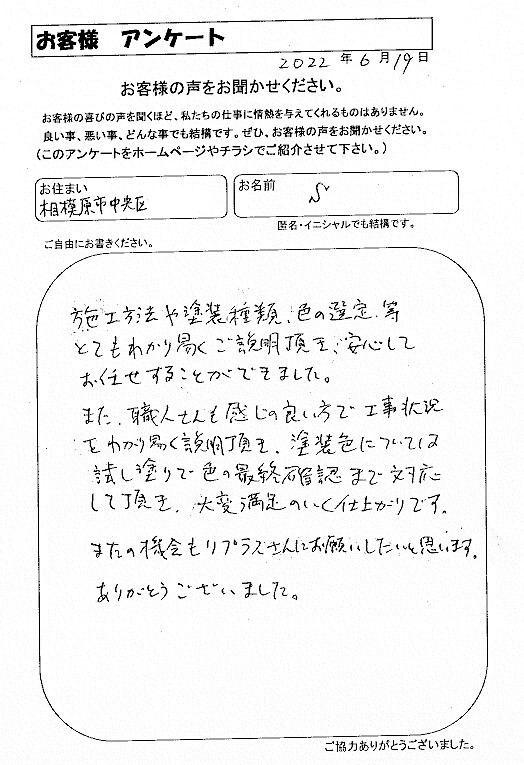 お客様 アンケート
2022 年 6 月 19 日
お客様の声をお聞かせください。
お客様の喜びの声を聞くほど、私たちの仕事に情熱を与えてくれるものはありません。
良い事、悪い事、どんな事でも結構です。ぜひ、お客様の声をお聞かせください。
(このアンケートをホームページやチラシでご紹介させて下さい。)
お住まい
相模原市中央区
お名前
匿名・イニシャルでも結構です。
ご自由にお書きください。
施工方法や塗装種類、色の選定、等
とてもわかり易くご説明頂き、安心して
お任せすることができました。
また、職人さんも感じの良い方で工事状況
をわかり易く説明頂き、塗装色については
試し塗りで色の最終確認まで対応
して頂き、大変満足のいく仕上がりです。
またの機会もリプラスさんにお願いしたいと思います。
ありがとうございました。
ご協力ありがとうございました。